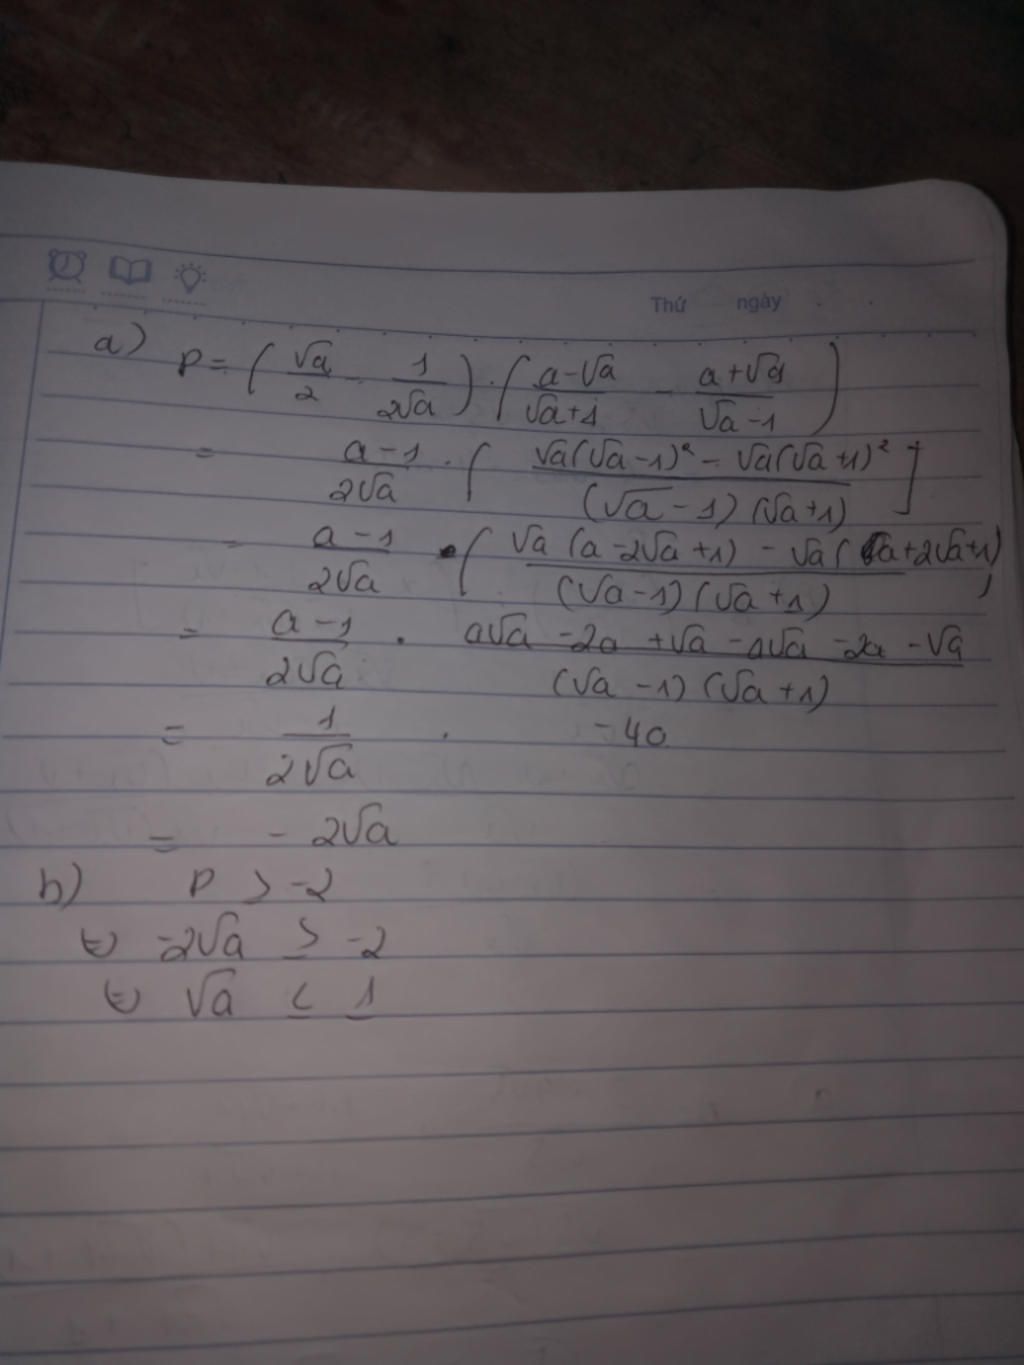 Thứ ngày
a) P = ( √a/2 - 1/2√a ) . ( a-√a/√a+1 - a+√a/√a-1 )
= a-1/2√a . [ √a(√a-1)² - √a(√a+1)²/(√a-1)(√a+1) ]
= a-1/2√a . ( √a(a-2√a+1) - √a(a+2√a+1)/(√a-1)(√a+1) )
= a-1/2√a . a√a-2a+√a-a√a-2a-√a/(√a-1)(√a+1)
= 1/2√a . -4a
= -2√a
b) P > -2
⇔ -2√a > -2
⇔ √a < 1